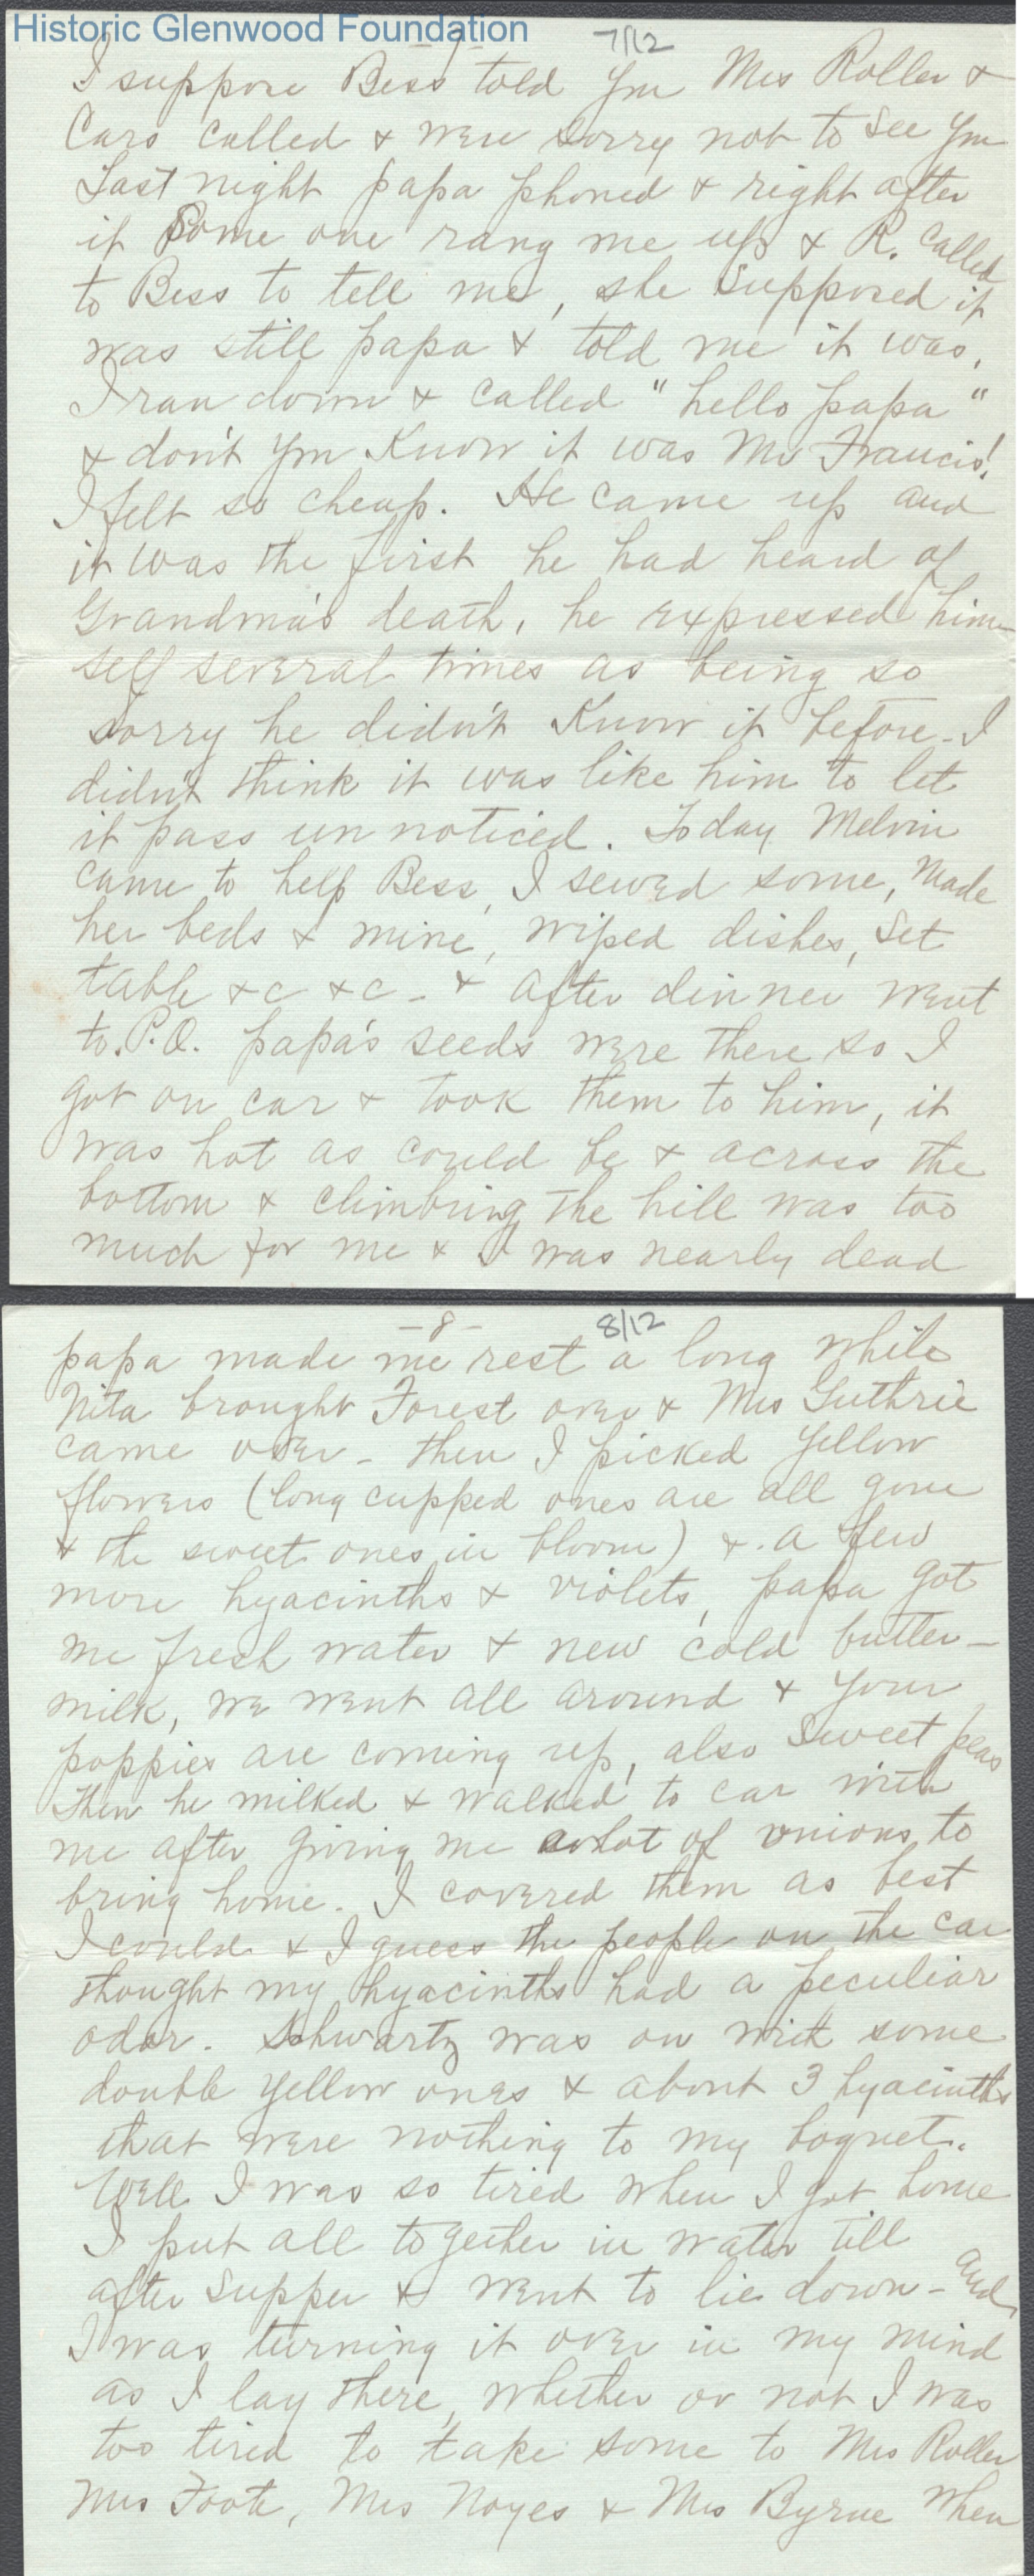 Historic Glenwood Foundation
-7- 7/12
I suppose Bess told you Mrs Roller &
Caro called & were sorry not to see you
Last night papa phoned & right after
it some one rang me up & R. called
to Bess to tell me, she supposed it
was still papa & told me it was,
I ran down & called "hello papa"
& don't you know it was Mr Francis!
I felt so cheap. He came up and
it was the first he had heard of
Grandma's death, he expressed him-
self several times as being so
sorry he didn't know it before - I
didn't think it was like him to let
it pass un noticed. Today Melvin
came to help Bess, I sewed some, made
her beds & mine, wiped dishes, set
table &c &c - & after dinner went
to P.O. papa's seeds were there so I
got on car & took them to him, it
was hot as could be & across the
bottom & climbing the hill was too
much for me & I was nearly dead
-8- 8/12
papa made me rest a long while
Nita brought Forest over & Mrs Guthrie
came over - then I picked yellow
flowers (long cupped ones are all gone
& the sweet ones in bloom) &. a few
more hyacinths & violets, papa got
me fresh water & new cold butter-
milk, we went all around & your
poppies are coming up, also sweet peas
Then he milked & walked to car with
me after giving me a lot of onions to
bring home. I covered them as best
I could & I guess the people on the car
thought my hyacinths had a peculiar
odor. Schwartz was on with some
double yellow ones & about 3 hyacinths
that were nothing to my boquet.
Well I was so tired when I got home
I put all together in water till
after supper & went to lie down - and
I was turning it over in my mind
as I lay there, whether or not I was
too tired to take some to Mrs Roller
Mrs Foote, Mrs Noyes & Mrs Byrne when